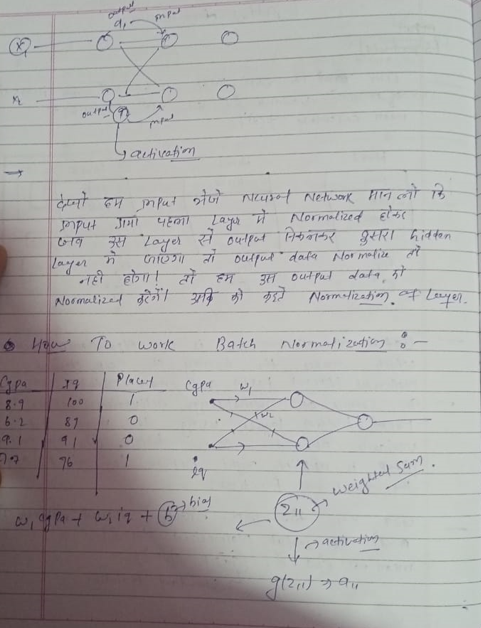 output
a₁
input
x₁
x₂
output
a₂
input
activation
देखो हम input भेजे Neural Network मान लो कि
input गया पहला Layer में Normalized होकर
जब उस Layer से output निकलकर दुसरा hidden
Layer में जाएगा तो output data Normalize तो
नही होगा। तो हम उस output data को
Normalized करेंगे। को कहते Normalization of Layer.
How To Work Batch Normalization :-
Cgpa Iq Place1
8.9 100 1
6.2 87 0
9.1 91 0
76 1
Cgpa
w₁
w₂
iq
w₁ cgpa + w₁ iq + b
bias
z₁₁
Weighted Sum
activation
g(z₁₁) → a₁₁